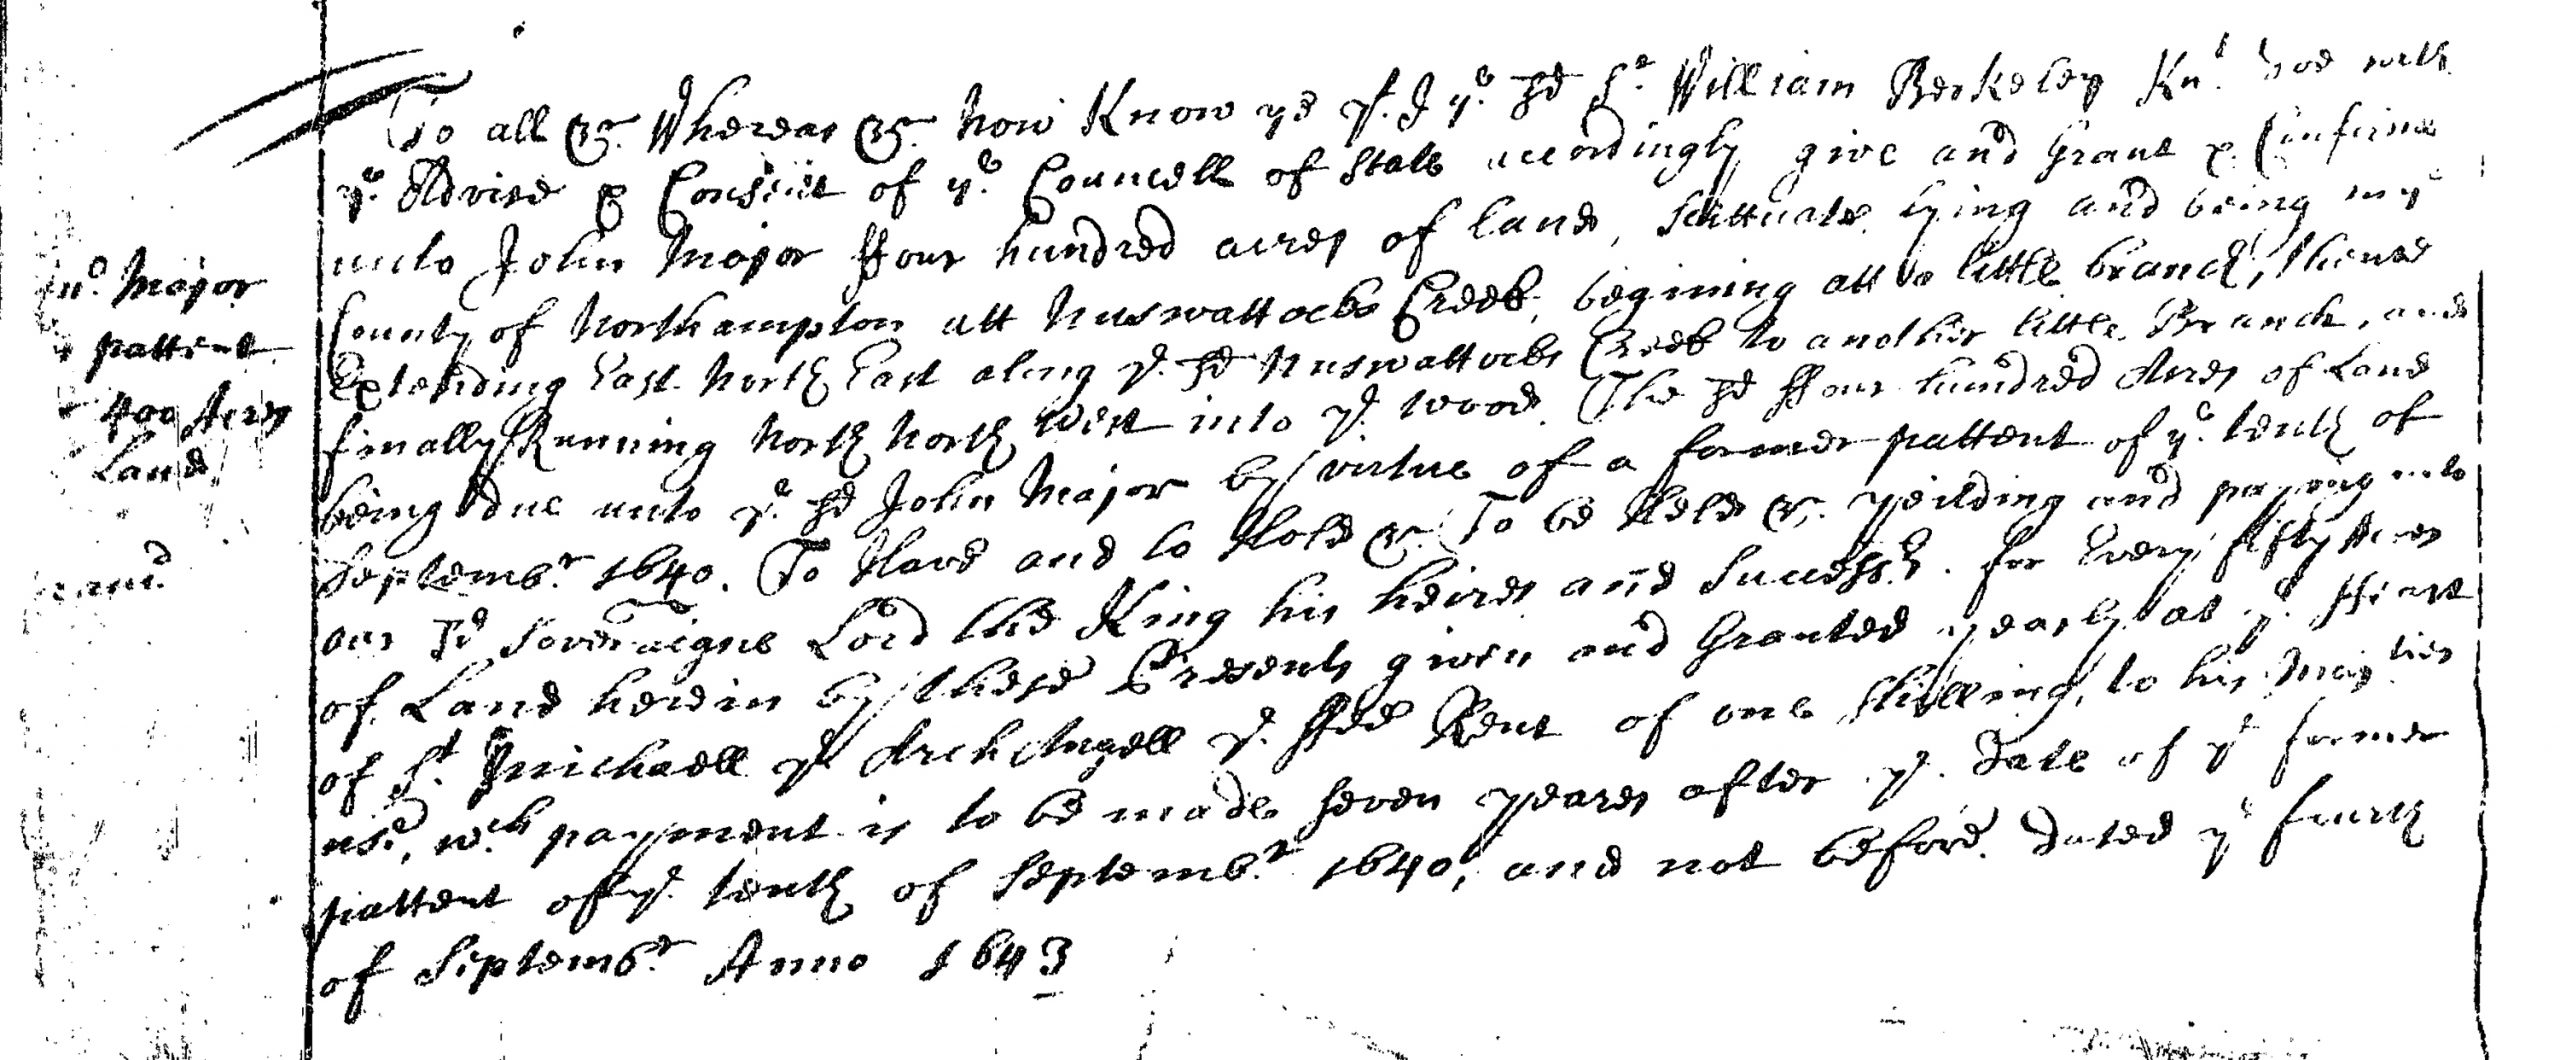 To all &c. Whereas &c. Now Know ye yt. I ye. sd Sr. William Berkeley Knt. doe with
ye. Advise & Consent of ye. Councell of State accordingly give and Grant & Confirme
unto John Major ffour hundred acres of land, Scittuate lying and being in ye
County of Northampton att Nuswattocks Creek, begining att a little branch, thence
Extending East North East along ye. sd Nuswattocks Creek to another little Branch, and
finally Running North North West into ye. woods. The sd ffour hundred Acres of Land
being due unto ye. sd John Major by virtue of a former pattent of ye. tenth of
Septembr. 1640. To Have and to Hold &c. To be Held &c. yeilding and paying unto
our sd Soveraigne Lord the King his heires and Successrs. for Every fifty Acres
of Land herein by these Presents given and Granted yearly at ye. ffeast
of St. Michaell ye Arch Angell ye. ffee Rent of one Shilling, to his Majties
use, wch. payment is to be made seven yeares after ye. Date of ye former
pattent of ye. tenth of Septembr. 1640, and not before. Dated ye fourth
of Septembr. Anno 1643
Jno. Major
pattent
400 Acres
Land